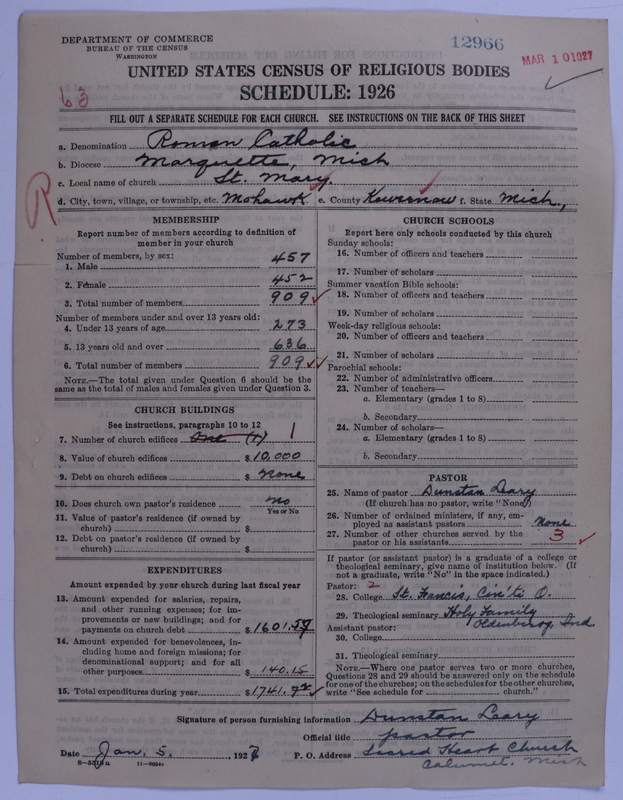 DEPARTMENT OF COMMERCE
BUREAU OF THE CENSUS
WASHINGTON
12966
MAR 10 1927
UNITED STATES CENSUS OF RELIGIOUS BODIES
SCHEDULE: 1926
63
FILL OUT A SEPARATE SCHEDULE FOR EACH CHURCH. SEE INSTRUCTIONS ON THE BACK OF THIS SHEET
a. Denomination Roman Catholic
b. Diocese Marquette, Mich
c. Local name of church St. Mary.
R
d. City, town, village, or township, etc. Mohawk e. County Kewenaw f. State Mich.,
MEMBERSHIP
Report number of members according to definition of
member in your church
Number of members, by sex:
1. Male 457
2. Female 452
3. Total number of members 909
Number of members under and over 13 years old:
4. Under 13 years of age 273
5. 13 years old and over 636
6. Total number of members 909
NOTE.—The total given under Question 6 should be the
same as the total of males and females given under Question 3.
CHURCH BUILDINGS
See instructions, paragraphs 10 to 12
7. Number of church edifices One (1) 1
8. Value of church edifices $ 10,000
9. Debt on church edifices $ None
10. Does church own pastor's residence No
Yes or No
11. Value of pastor's residence (if owned by
church) $
12. Debt on pastor's residence (if owned by
church) $
EXPENDITURES
Amount expended by your church during last fiscal year
13. Amount expended for salaries, repairs,
and other running expenses; for im-
provements or new buildings; and for
payments on church debt $ 1601.59
14. Amount expended for benevolences, in-
cluding home and foreign missions; for
denominational support; and for all
other purposes $ 140.15
15. Total expenditures during year $ 1741.72
CHURCH SCHOOLS
Report here only schools conducted by this church
Sunday schools:
16. Number of officers and teachers
17. Number of scholars
Summer vacation Bible schools:
18. Number of officers and teachers
19. Number of scholars
Week-day religious schools:
20. Number of officers and teachers
21. Number of scholars
Parochial schools:
22. Number of administrative officers
23. Number of teachers—
a. Elementary (grades 1 to 8)
b. Secondary
24. Number of scholars—
a. Elementary (grades 1 to 8)
b. Secondary
PASTOR
25. Name of pastor Dunstan Leary
(If church has no pastor, write "None")
26. Number of ordained ministers, if any, em-
ployed as assistant pastors None
27. Number of other churches served by the
pastor or his assistants 3
If pastor (or assistant pastor) is a graduate of a college or
theological seminary, give name of institution below. (If
not a graduate, write "No" in the space indicated.)
Pastor: 2
28. College St. Francis, Cin'ti O.
29. Theological seminary Holy Family
Oldenburg, Ind.
Assistant pastor:
30. College
31. Theological seminary
NOTE.—Where one pastor serves two or more churches,
Questions 28 and 29 should be answered only on the schedule
for one of the churches; on the schedules for the other churches,
write "See schedule for church."
Signature of person furnishing information Dunstan Leary
Official title pastor
Date Jan. 5. 1927 P. O. Address Sacred Heart Church
Calumet, Mich